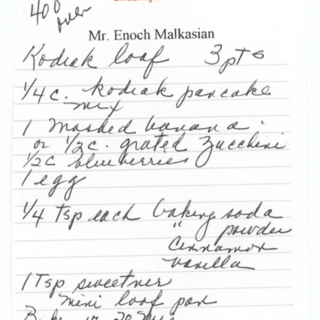 400
oven
Mr. Enoch Malkasian
Kodiak loaf 3 pts
1/4 c. Kodiak pancake
mix
1 mashed banana
or 1/2 c. grated zucchini
1/2 c blueberries
1 egg
1/4 tsp each baking soda
" powder
cinnamon
vanilla
1 Tsp sweetner
mini loaf pan